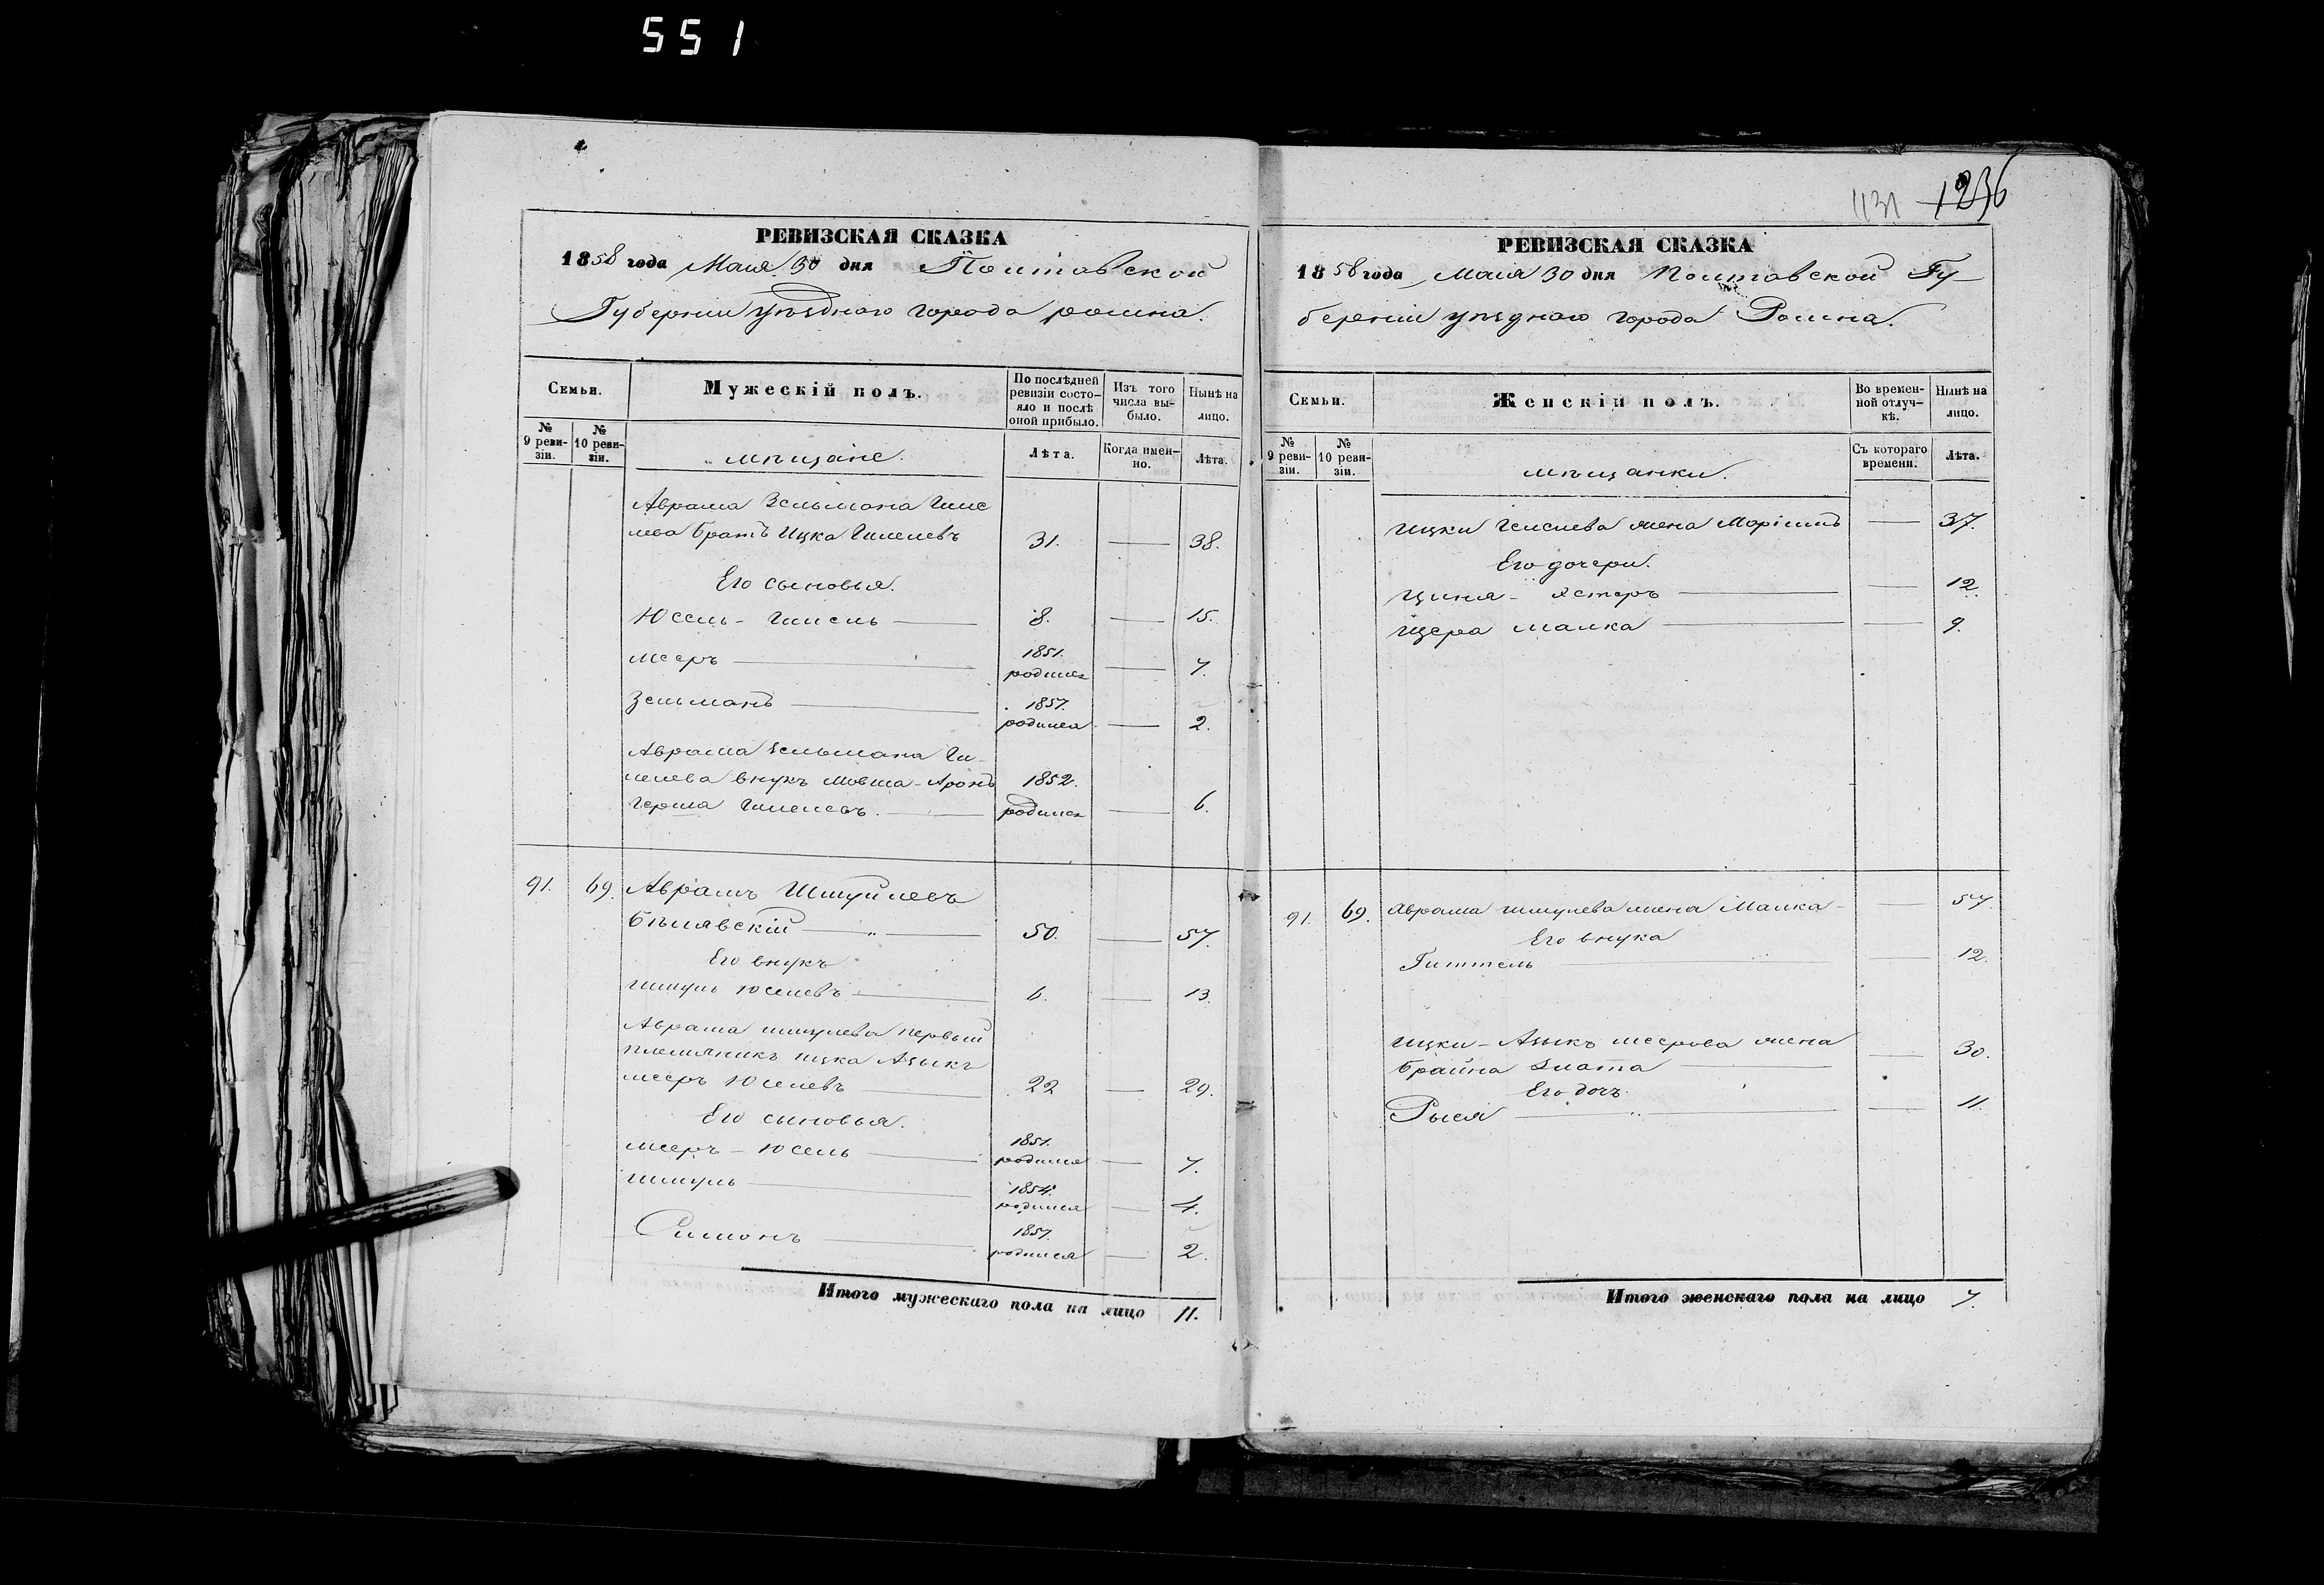 551
РЕВИЗСКАЯ СКАЗКА
1858 года Мая 30 дня Полтавской
Губерніи уѣзднаго города ромна.
Семьи.
Мужескій полъ.
По послѣдней ревизіи состо-
яло и послѣ оной прибыло.
Изъ того числа вы-
было.
Нынѣ на лицо.
№ 9 реви-
зіи.
№ 10 реви-
зіи.
мѣщане.
Лѣта.
Когда имен-
но.
Лѣта.
Аврама Зельмана Гиле
лева братъ Ицка Гилелевъ 31. 38.
Его сыновья.
Юсель - Гилель 8. 15.
мееръ 1851. родился 7.
Зельманъ 1857. родился 2.
Аврама Зельмана Ги-
лелева внукъ Мовша - Аронъ 1852.
герша Гилелевъ. родился 6.
91. 69. Аврамъ Шмуйлевъ
Бѣлявскій 50. 57.
Его внукъ
шмуль Юселевъ 6. 13.
Аврама шмулева первый
племяникъ ицка Азыкъ
мееръ Юселевъ 22 29.
Его сыновья.
мееръ - Юсель 1851. родился 7.
шмуль 1854. родился 4.
Симонъ 1857. родился 2.
Итого мужескаго пола на лицо 11.
1131 1236
РЕВИЗСКАЯ СКАЗКА
1858 года Мая 30 дня Полтавской Гу-
берніи уѣзднаго города Ромна.
Семьи.
Женскій полъ.
Во времен-
ной отлуч-
кѣ.
Нынѣ на лицо.
№ 9 реви-
зіи.
№ 10 реви-
зіи.
мѣщанки.
Съ котораго времени.
Лѣта.
Ицки Гилелева жена 37.
Его дочери.
Ципа - Эстеръ 12.
малка 9.
91. 69. Аврама шмулева жена Малка - 57.
Его внука
Гиттель 12.
Ицки - Азыкъ меерова жена
Брайна Злата 30.
Его дочь.
Рыся 11.
Итого женскаго пола на лицо 7.